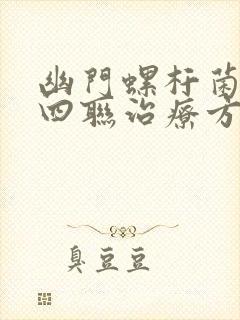 幽門螺杆菌
四聯治療方
臭豆豆